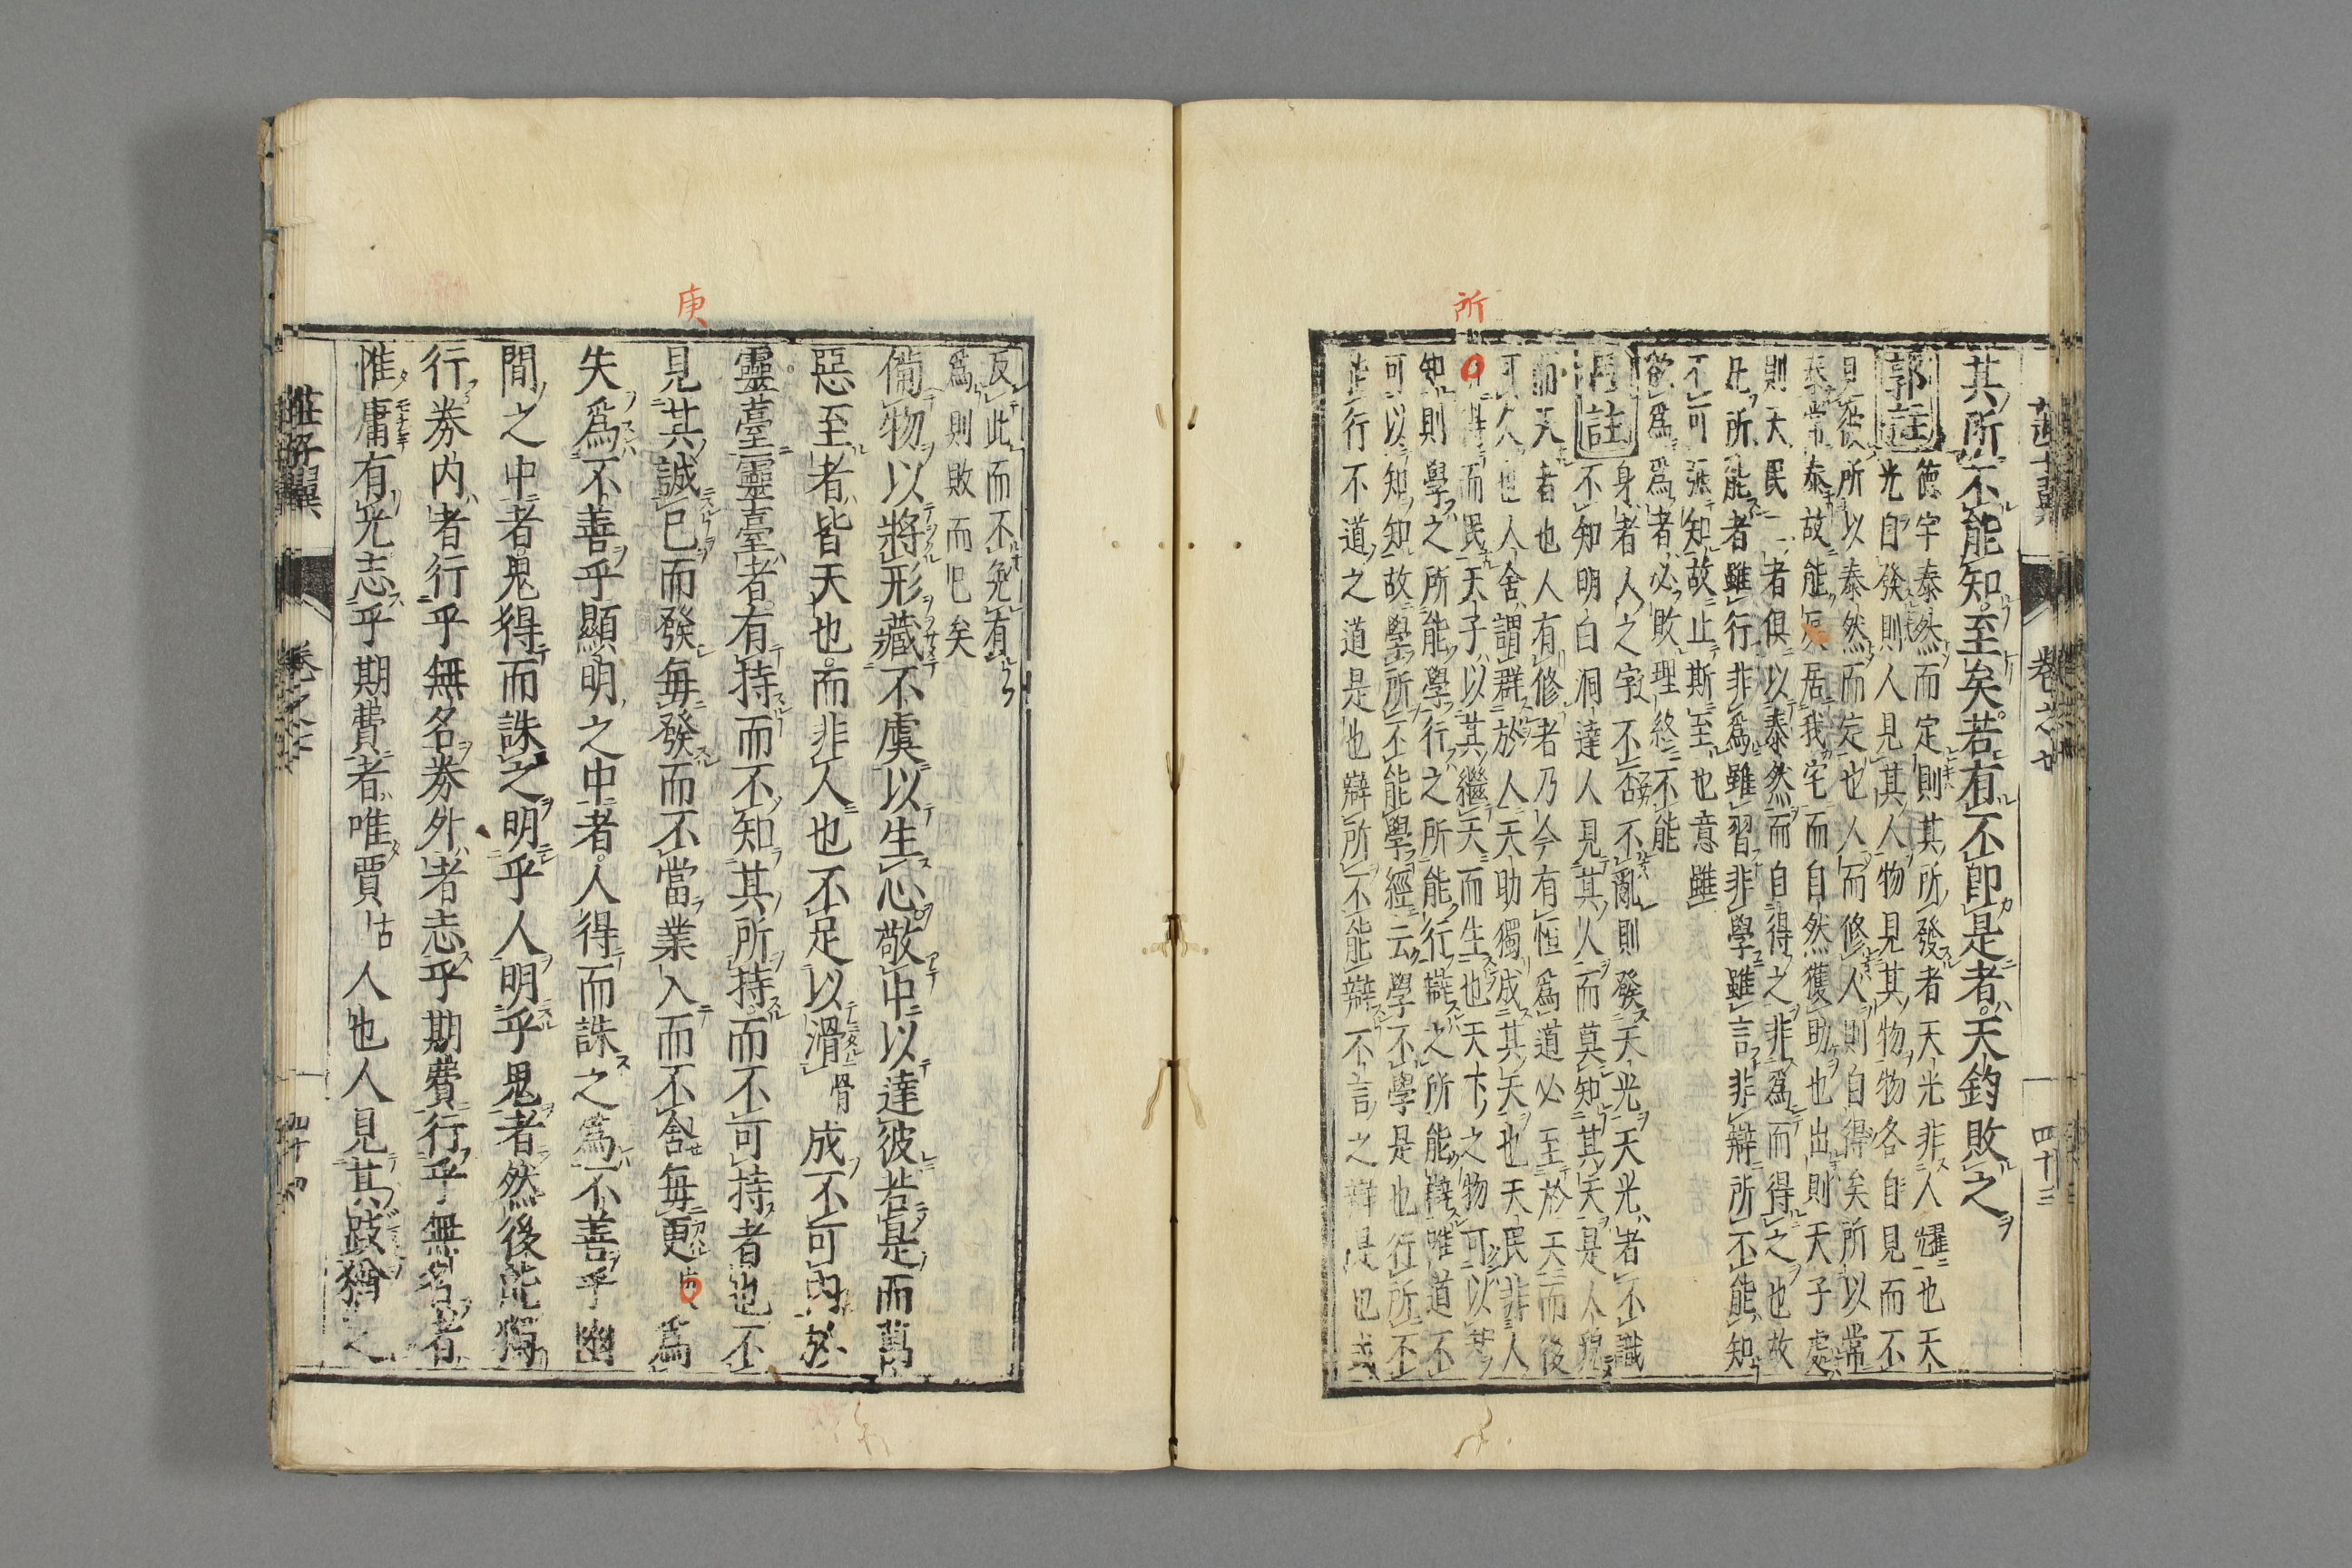 莊子翼 卷之六 四十三
其所不能知至矣若有不即是者天鈞敗之
郭註 德宇泰然而定則其所發者天光非人耀也天
光自發則人見其人物見其物物各自見而不
見彼所以泰然而定也人而修人則自得矣所以常
泰常泰故能反居我宅而自然獲助也出則天子處
則天民二者俱以泰然而自得之非爲而得之也故
凡所能者雖行非爲雖習非學雖言非辯所不能知
不可彊知故止斯至也意雖
欲爲爲者必敗理終不能
註 身者人之宇宇不否不亂則發天光天光者不識
不知明白洞達人見其人而莫知其天是人貌
而天者也人有修者乃今有恒爲道必至於天而後
可久也人舍謂群於人天助獨成其天也天民非人
所得而民天子以其繼天而生也天下之物可以
知則學之所能學行之所能行辯之所能辯唯道不
可以知知故學所不能學經云學不學是也行所不
能行不道之道是也辯所不能辯不言之辯是也或
反此而不免有
爲則敗而已矣
備物以將形藏不虞以生心敬中以達彼若是而萬
惡至者皆天也而非人也不足以滑骨成不可內於
靈臺靈臺者有持而不知其所持而不可持者也不
見其誠已而發每發而不當業入而不舍每更爲
失爲不善乎顯明之中者人得而誅之爲不善乎幽
間之中者鬼得而誅之明乎人明乎鬼者然後能獨
行券內者行乎無名券外者志乎期費行乎無名者
惟庸有光志乎期費者唯賈古人也人見其跂猶之
莊子翼 卷之六 四十四
所
庚